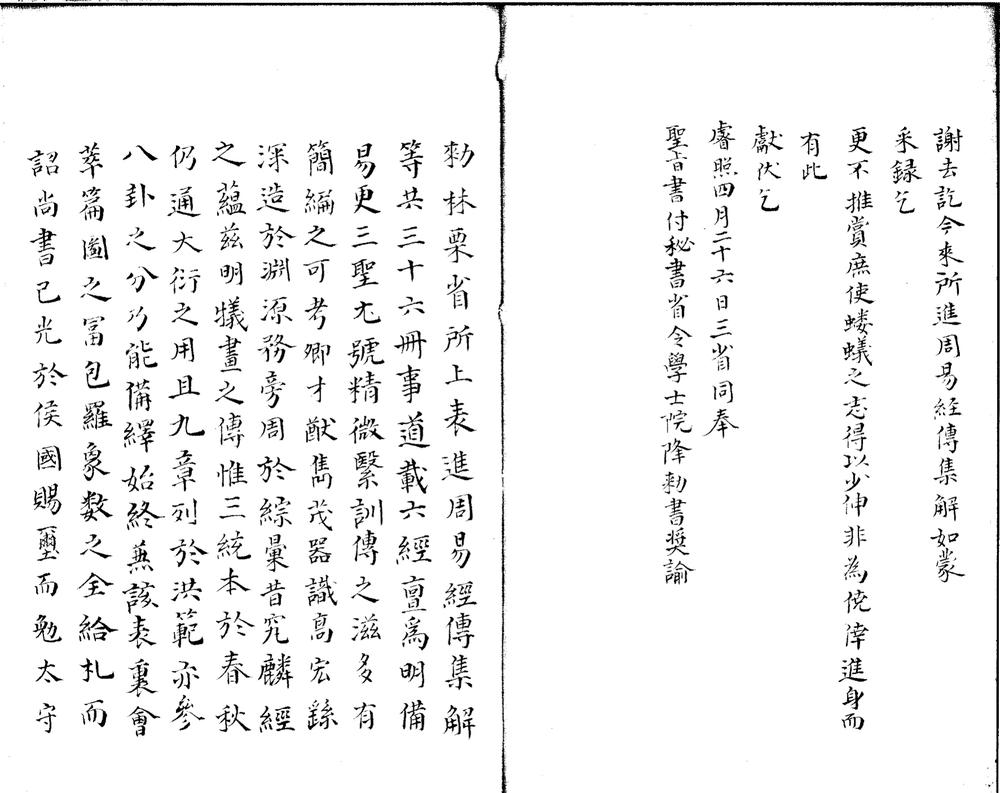 謝去訖今來所進周易經傳集解如蒙
采録乞
更不推賞庶使螻蟻之志得以少伸非為僥倖進身而
有此
獻伏乞
睿照四月二十六日三省同奉
聖旨書付秘書省令學士院降勑書奬諭
勑林栗省所上表進周易經傳集解
等共三十六冊事道載六經亶爲明備
易更三聖尤號精微繫訓傳之滋多有
簡編之可考卿才猷雋茂器識高宏繇
深造於淵源務旁周於綜彙昔究麟經
之蘊茲明犧畫之傳惟三統本於春秋
仍通大衍之用且九章列於洪範亦參
八卦之分乃能備繹始終兼該表裏會
萃篇圖之冨包羅象数之全給札而
詔尚書已光於侯國賜璽而勉太守